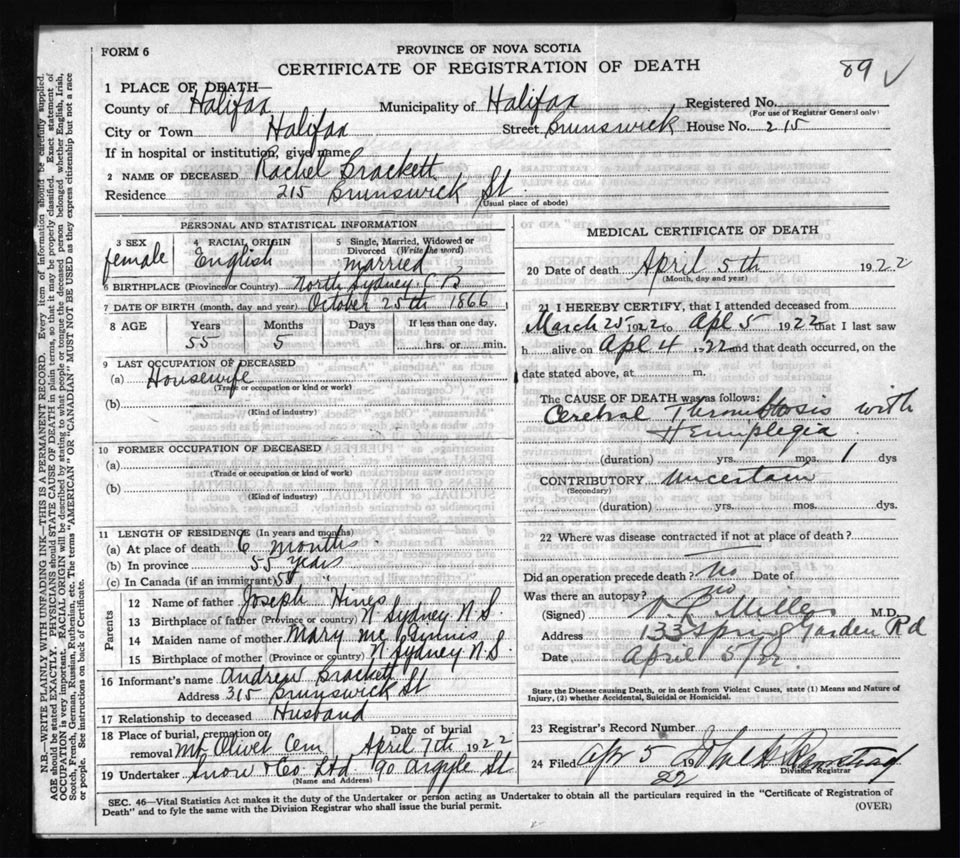 FORM 6
PROVINCE OF NOVA SCOTIA
CERTIFICATE OF REGISTRATION OF DEATH
89 ✓
1 PLACE OF DEATH—
County of Halifax Municipality of Halifax Registered No.
(For use of Registrar General only)
City or Town Halifax Street Brunswick House No. 215
If in hospital or institution, give name
2 NAME OF DECEASED Rachel Brackett
Residence 215 Brunswick St
(Usual place of abode)
PERSONAL AND STATISTICAL INFORMATION
3 SEX 4 RACIAL ORIGIN 5 Single, Married, Widowed or Divorced (Write the word)
female English married
6 BIRTHPLACE (Province or Country) North Sydney C B
7 DATE OF BIRTH (month, day and year) October 25th 1866
8 AGE Years Months Days If less than one day,
55 5 hrs. or min.
9 LAST OCCUPATION OF DECEASED
(a) Housewife
(Trade or occupation or kind or work)
(b)
(Kind of industry)
10 FORMER OCCUPATION OF DECEASED
(a)
(Trade or occupation or kind of work)
(b)
(Kind of industry)
11 LENGTH OF RESIDENCE (In years and months)
(a) At place of death 6 months
(b) In province 55 years
(c) In Canada (if an immigrant) 55 "
Parents
12 Name of father Joseph Hines
13 Birthplace of father (Province or country) N Sydney N S
14 Maiden name of mother Mary Mc Ginnis
15 Birthplace of mother (Province or country) N Sydney N.S.
16 Informant's name Andrew Brackett
Address 315 Brunswick St
17 Relationship to deceased Husband
18 Place of burial, cremation or removal Mt Olivet Cem Date of burial April 7th 1922
19 Undertaker Snow & Co Ltd 90 Argyle St
(Name and Address)
MEDICAL CERTIFICATE OF DEATH
20 Date of death April 5th 1922
(Month, day and year)
21 I HEREBY CERTIFY, that I attended deceased from
March 25 1922 to Apl 5 1922 that I last saw
h alive on Apl 4 1922 and that death occurred, on the
date stated above, at m.
The CAUSE OF DEATH was as follows:
Cerebral Thrombosis with
Hemiplegia
(duration) yrs. mos. 1 dys
CONTRIBUTORY Uncertain
(Secondary)
(duration) yrs. mos. dys.
22 Where was disease contracted if not at place of death?
Did an operation precede death? no Date of
Was there an autopsy? no
(Signed) Miller M.D.
Address 133 Spring Garden Rd
Date April 5/22.
State the Disease causing Death, or in death from Violent Causes, state (1) Means and Nature of
Injury, (2) whether Accidental, Suicidal or Homicidal.
23 Registrar's Record Number
24 Filed Apr 5 22
Division Registrar
SEC. 46—Vital Statistics Act makes it the duty of the Undertaker or person acting as Undertaker to obtain all the particulars required in the "Certificate of Registration of
Death" and to fyle the same with the Division Registrar who shall issue the burial permit.
(OVER)
N.B.—WRITE PLAINLY WITH UNFADING INK—THIS IS A PERMANENT RECORD. Every item of information should be carefully supplied.
AGE should be stated EXACTLY. PHYSICIANS should STATE CAUSE OF DEATH in plain terms, so that it may be properly classified. Exact statement of
OCCUPATION is very important. RACIAL ORIGIN will be described by stating to what people or tongue the deceased person belonged whether English, Irish,
Scotch, French, German, Russian, Ruthenian, etc. The terms "AMERICAN" OR "CANADIAN" MUST NOT BE USED as they express citizenship but not a race
or people. See instructions on back of Certificate.